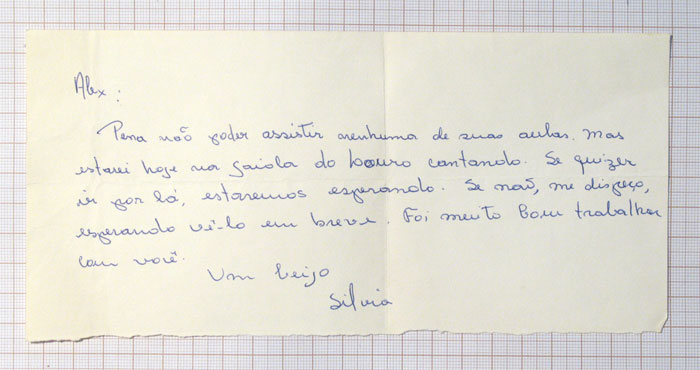 Alex:
Pena não poder assistir nenhuma de suas aulas. Mas
estarei hoje na gaiola do louro cantando. Se quizer
ir por lá, estaremos esperando. Se não, me dispeço,
esperando vê-lo em breve. Foi muito bom trabalhar
com você.
Um beijo
Silvia